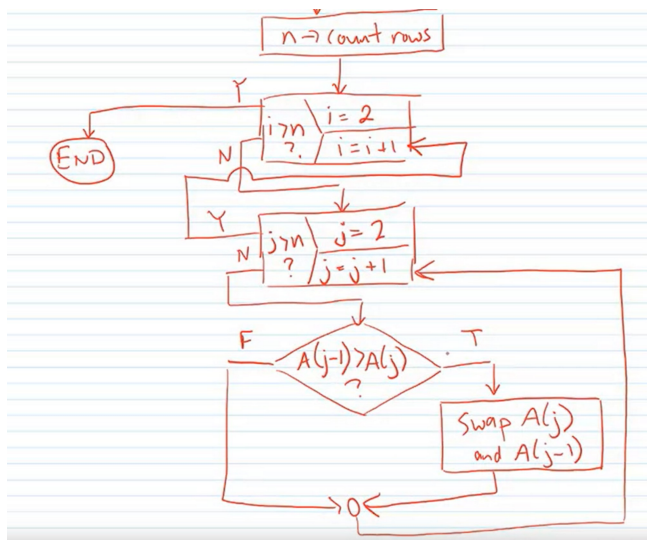 n → count rows
Y
i>n
?
i = 2
i = i+1
END
N
Y
j>n
?
j = 2
j = j+1
N
F
A(j-1)>A(j)
?
T
Swap A(j)
and A(j-1)